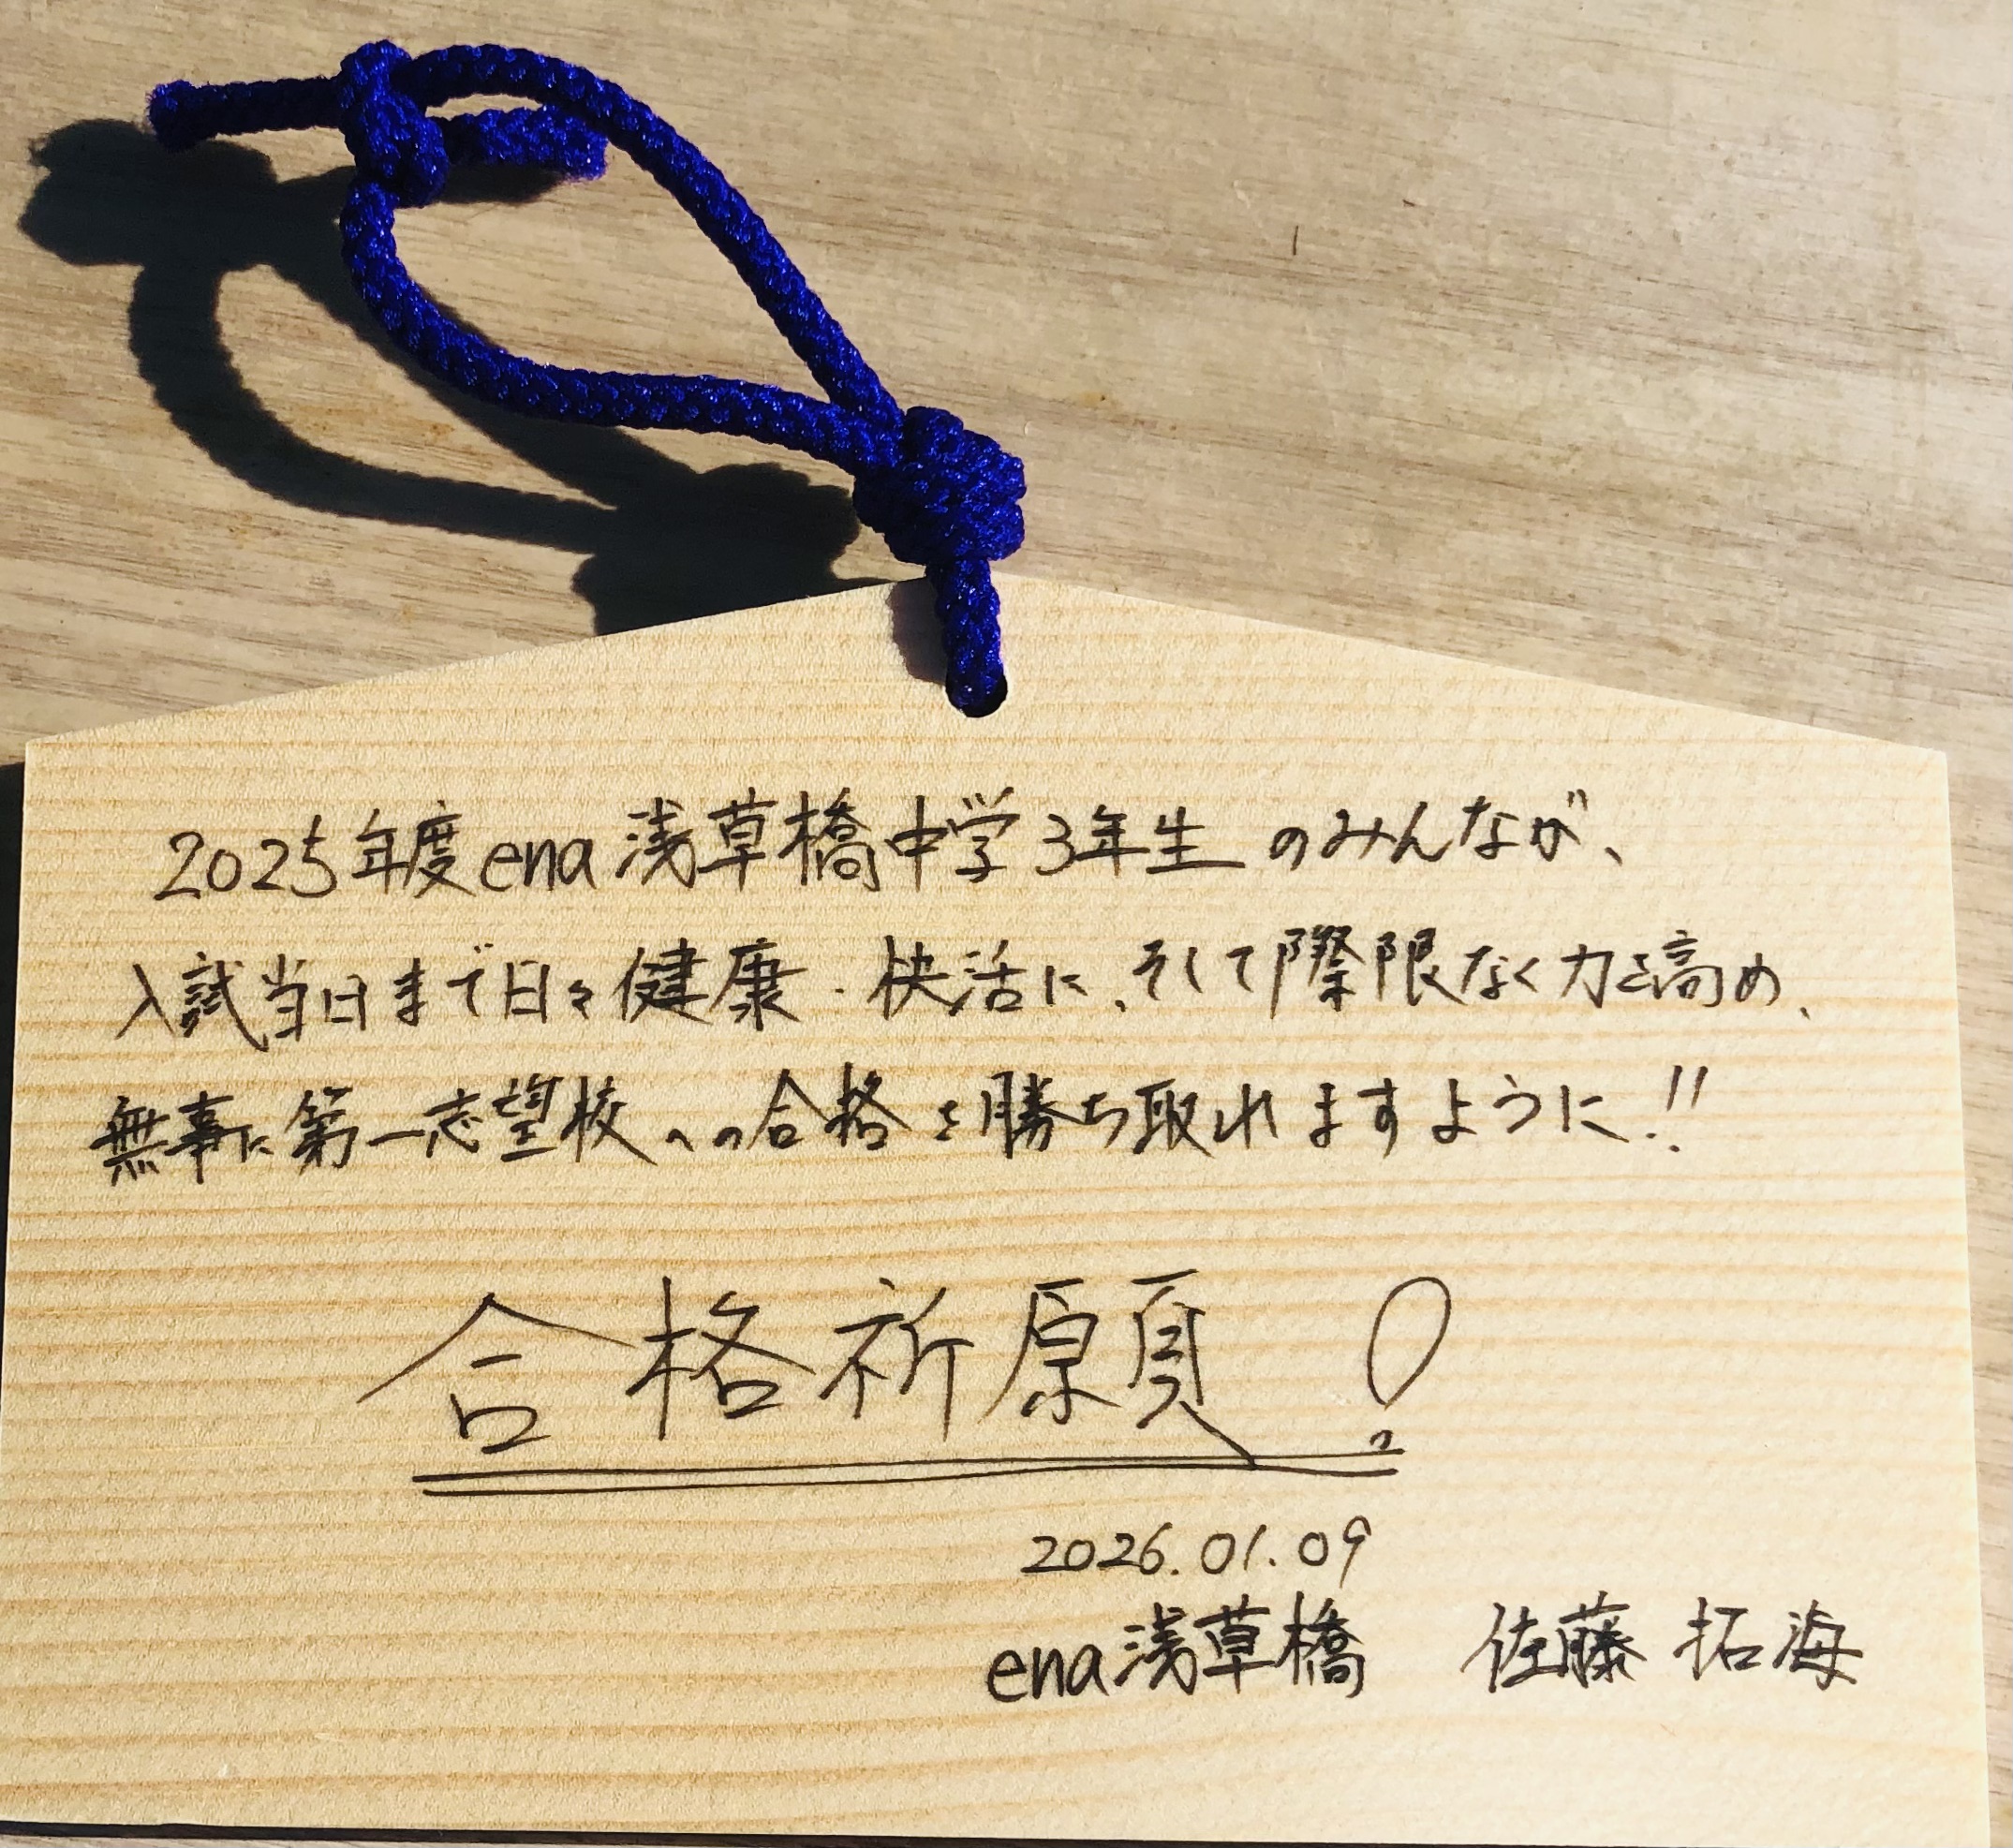 2025年度ena浅草橋中学3年生のみんなが、
入試当日まで日々健康・快活に、そして際限なく力を高め、
無事に第一志望校への合格を勝ち取れますように!!
合格祈願!
2026.01.09
ena浅草橋 佐藤 拓海